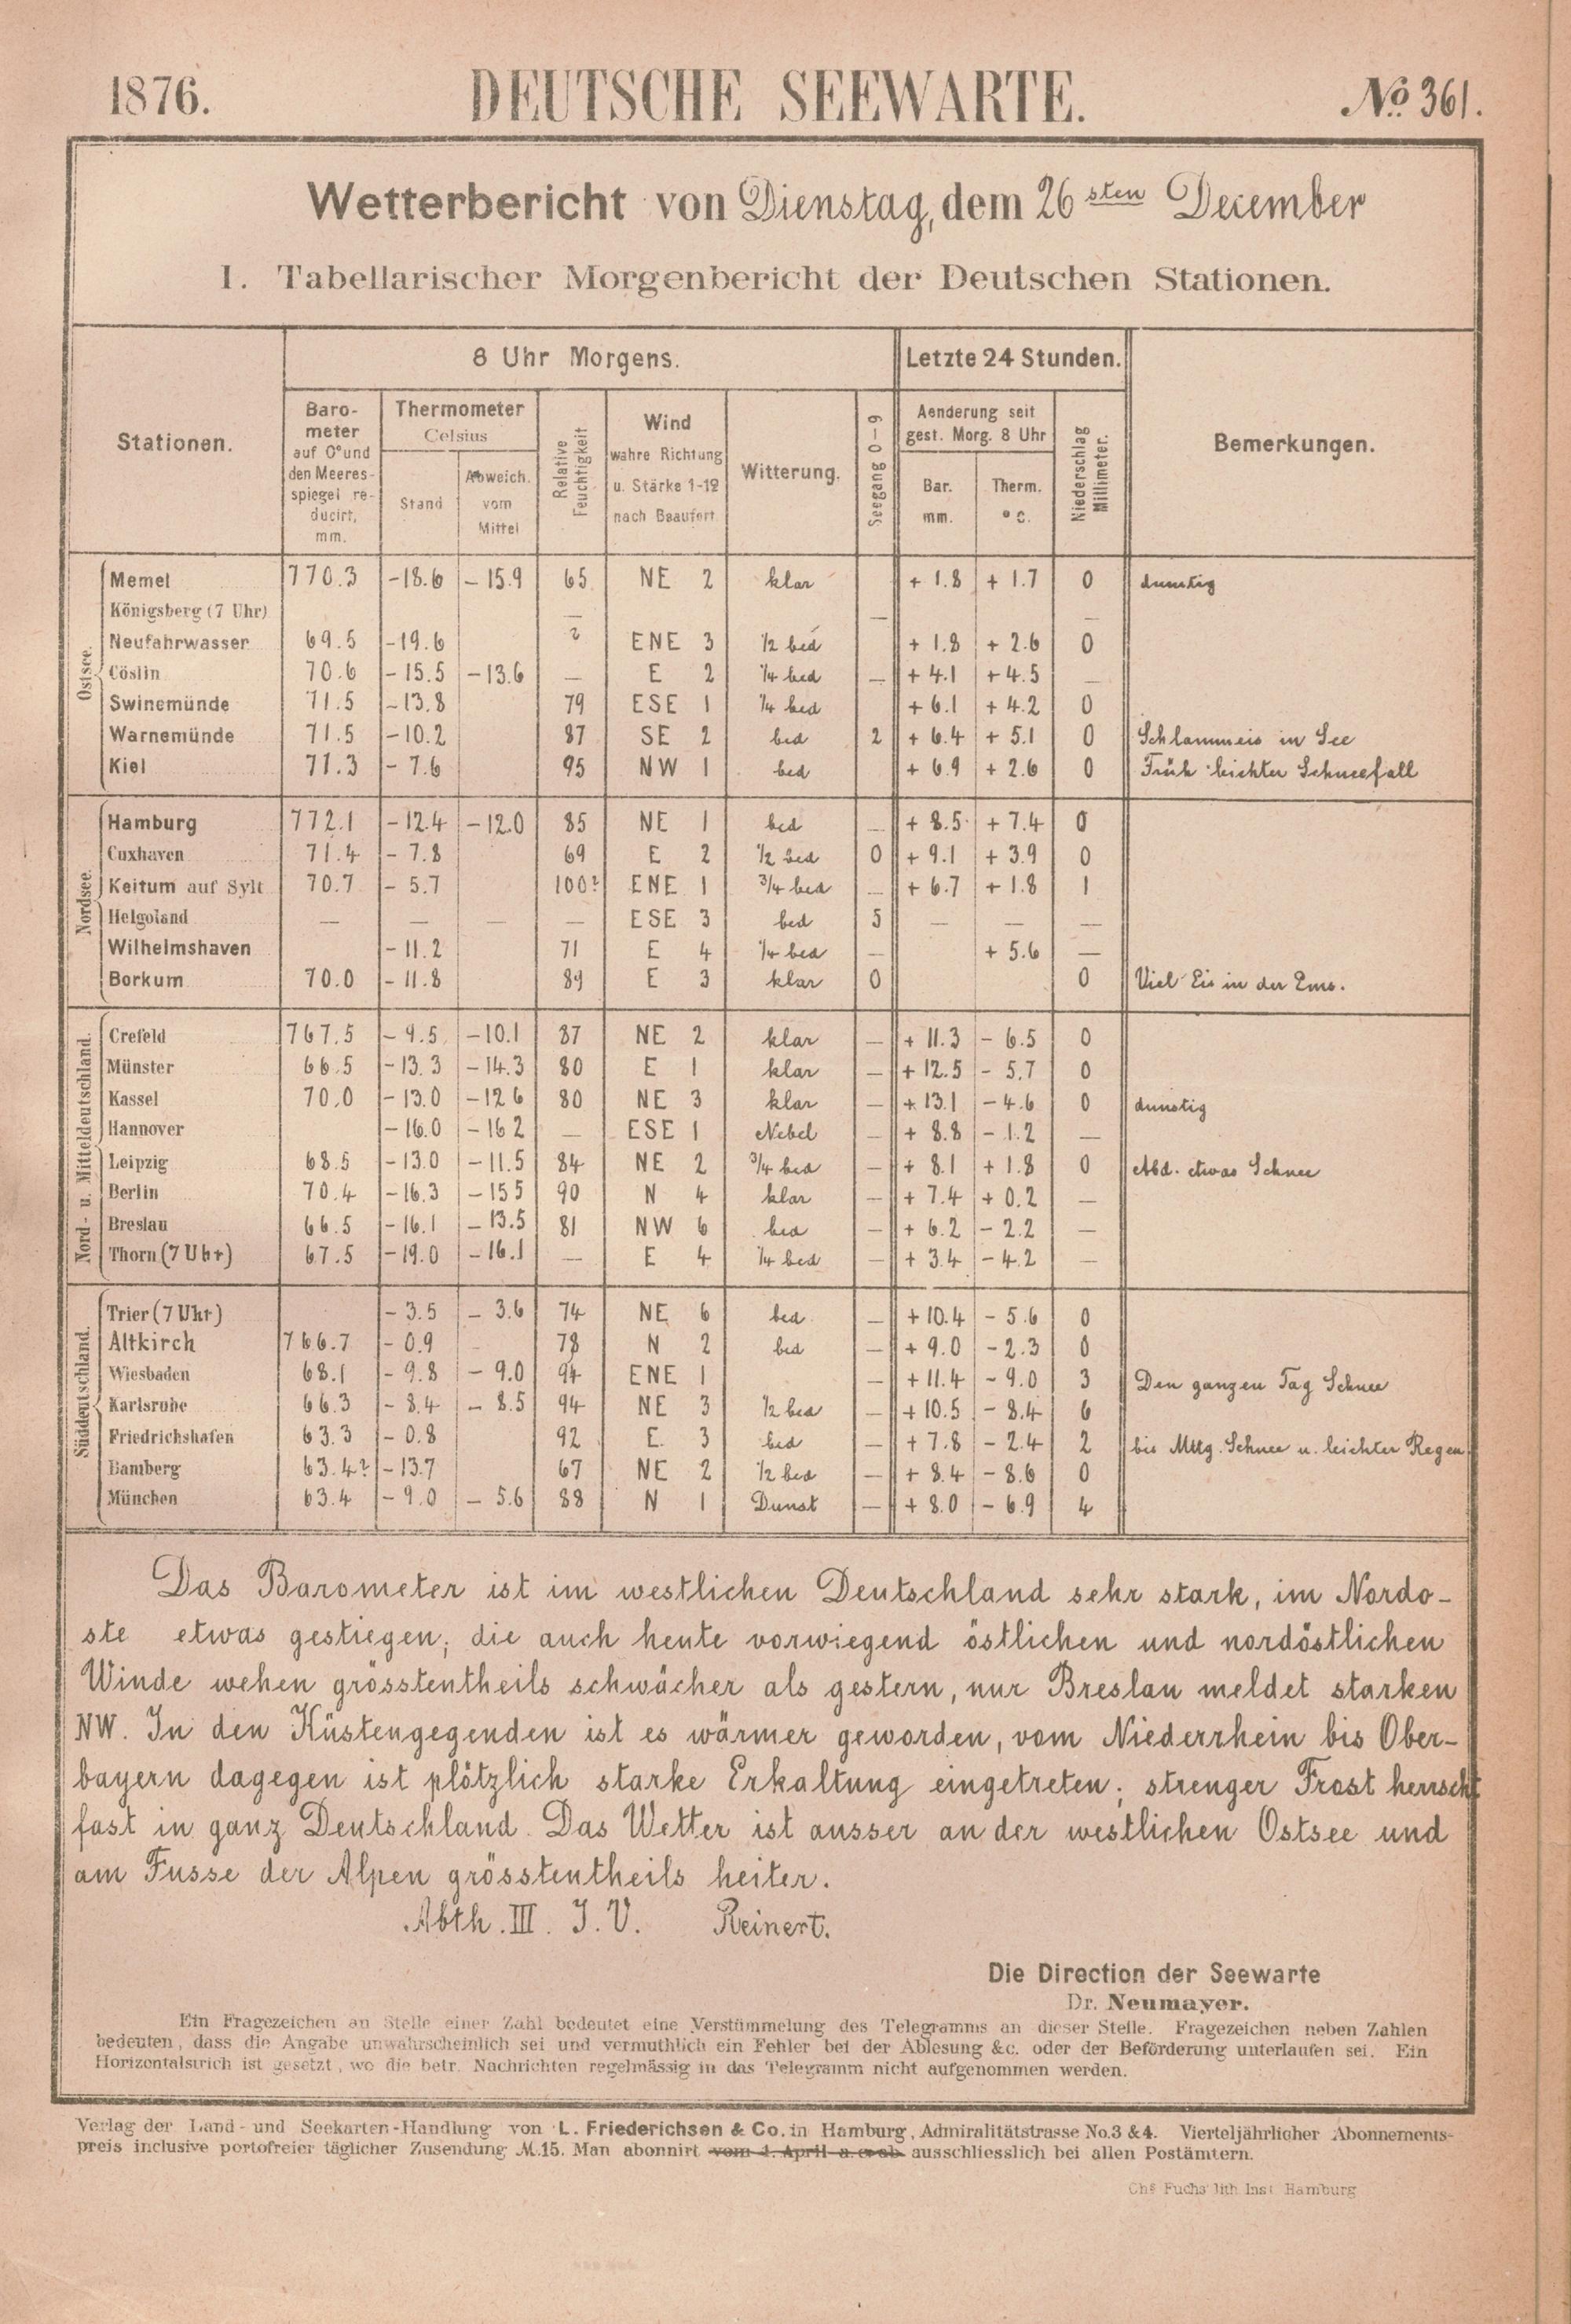 1876. DEUTSCHE SEEWARTE. No. 361.
Wetterbericht von Dienstag, dem 26sten December
I. Tabellarischer Morgenbericht der Deutschen Stationen.
Stationen. 8 Uhr Morgens. Letzte 24 Stunden. Bemerkungen.
Barometer auf 0° und den Meeresspiegel reducirt, mm. Thermometer Celsius Stand Abweich. vom Mittel Relative Feuchtigkeit Wind wahre Richtung u. Stärke 1-12 nach Beaufort Witterung. Seegang 0-9 Aenderung seit gest. Morg. 8 Uhr Bar. mm. Therm. °C. Niederschlag Millimeter.
Ostsee.
Memel 770.3 -18.6 -15.9 65 NE 2 klar +1.8 +1.7 0 dunstig
Königsberg (7 Uhr) — — —
Neufahrwasser 69.5 -19.6 ? ENE 3 ½ bed +1.8 +2.6 0
Cöslin 70.6 -15.5 -13.6 — E 2 ¼ bed — +4.1 +4.5 —
Swinemünde 71.5 -13.8 79 ESE 1 ¼ bed +6.1 +4.2 0
Warnemünde 71.5 -10.2 87 SE 2 bed 2 +6.4 +5.1 0 Schlammeis in See
Kiel 71.3 -7.6 95 NW 1 bed +6.9 +2.6 0 Früh leichter Schneefall
Nordsee.
Hamburg 772.1 -12.4 -12.0 85 NE 1 bed — +8.5 +7.4 0
Cuxhaven 71.4 -7.8 69 E 2 ½ bed 0 +9.1 +3.9 0
Keitum auf Sylt 70.7 -5.7 100? ENE 1 ¾ bed — +6.7 +1.8 1
Helgoland — — — — ESE 3 bed 5 — — —
Wilhelmshaven -11.2 71 E 4 ¼ bed — +5.6 —
Borkum 70.0 -11.8 89 E 3 klar 0 0 Viel Eis in der Ems.
Nord- u. Mitteldeutschland.
Crefeld 767.5 -9.5 -10.1 87 NE 2 klar — +11.3 -6.5 0
Münster 66.5 -13.3 -14.3 80 E 1 klar — +12.5 -5.7 0
Kassel 70.0 -13.0 -12.6 80 NE 3 klar — +13.1 -4.6 0 dunstig
Hannover -16.0 -16.2 — ESE 1 Nebel — +8.8 -1.2 —
Leipzig 68.5 -13.0 -11.5 84 NE 2 ¾ bed — +8.1 +1.8 0 Abd. etwas Schnee
Berlin 70.4 -16.3 -15.5 90 N 4 klar — +7.4 +0.2 —
Breslau 66.5 -16.1 -13.5 81 NW 6 bed — +6.2 -2.2 —
Thorn (7 Uhr) 67.5 -19.0 -16.1 — E 4 ¼ bed — +3.4 -4.2 —
Süddeutschland.
Trier (7 Uhr) -3.5 -3.6 74 NE 6 bed — +10.4 -5.6 0
Altkirch 766.7 -0.9 78 N 2 bed — +9.0 -2.3 0
Wiesbaden 68.1 -9.8 -9.0 94 ENE 1 — +11.4 -9.0 3 Den ganzen Tag Schnee
Karlsruhe 66.3 -8.4 -8.5 94 NE 3 ½ bed — +10.5 -8.4 6
Friedrichshafen 63.3 -0.8 92 E. 3 bed — +7.8 -2.4 2 bis Mttg. Schnee u. leichter Regen
Bamberg 63.4? -13.7 67 NE 2 ½ bed — +8.4 -8.6 0
München 63.4 -9.0 -5.6 88 N 1 Dunst — +8.0 -6.9 4
Das Barometer ist im westlichen Deutschland sehr stark, im Nordo-
ste etwas gestiegen; die auch heute vorwiegend östlichen und nordöstlichen
Winde wehen grösstentheils schwächer als gestern, nur Breslau meldet starken
NW. In den Küstengegenden ist es wärmer geworden, vom Niederrhein bis Ober-
bayern dagegen ist plötzlich starke Erkaltung eingetreten; strenger Frost herrscht
fast in ganz Deutschland. Das Wetter ist ausser an der westlichen Ostsee und
am Fusse der Alpen grösstentheils heiter.
Abth. III. I. V. Reinert.
Die Direction der Seewarte
Dr. Neumayer.
Ein Fragezeichen an Stelle einer Zahl bedeutet eine Verstümmelung des Telegramms an dieser Stelle. Fragezeichen neben Zahlen
bedeuten, dass die Angabe unwahrscheinlich sei und vermuthlich ein Fehler bei der Ablesung &c. oder der Beförderung unterlaufen sei. Ein
Horizontalstrich ist gesetzt, wo die betr. Nachrichten regelmässig in das Telegramm nicht aufgenommen werden.
Verlag der Land- und Seekarten-Handlung von L. Friederichsen & Co. in Hamburg, Admiralitätstrasse No. 3 & 4. Vierteljährlicher Abonnements-
preis inclusive portofreier täglicher Zusendung M. 15. Man abonnirt vom 1. April a. c. ab ausschliesslich bei allen Postämtern.
Chs Fuchs lith. Inst. Hamburg